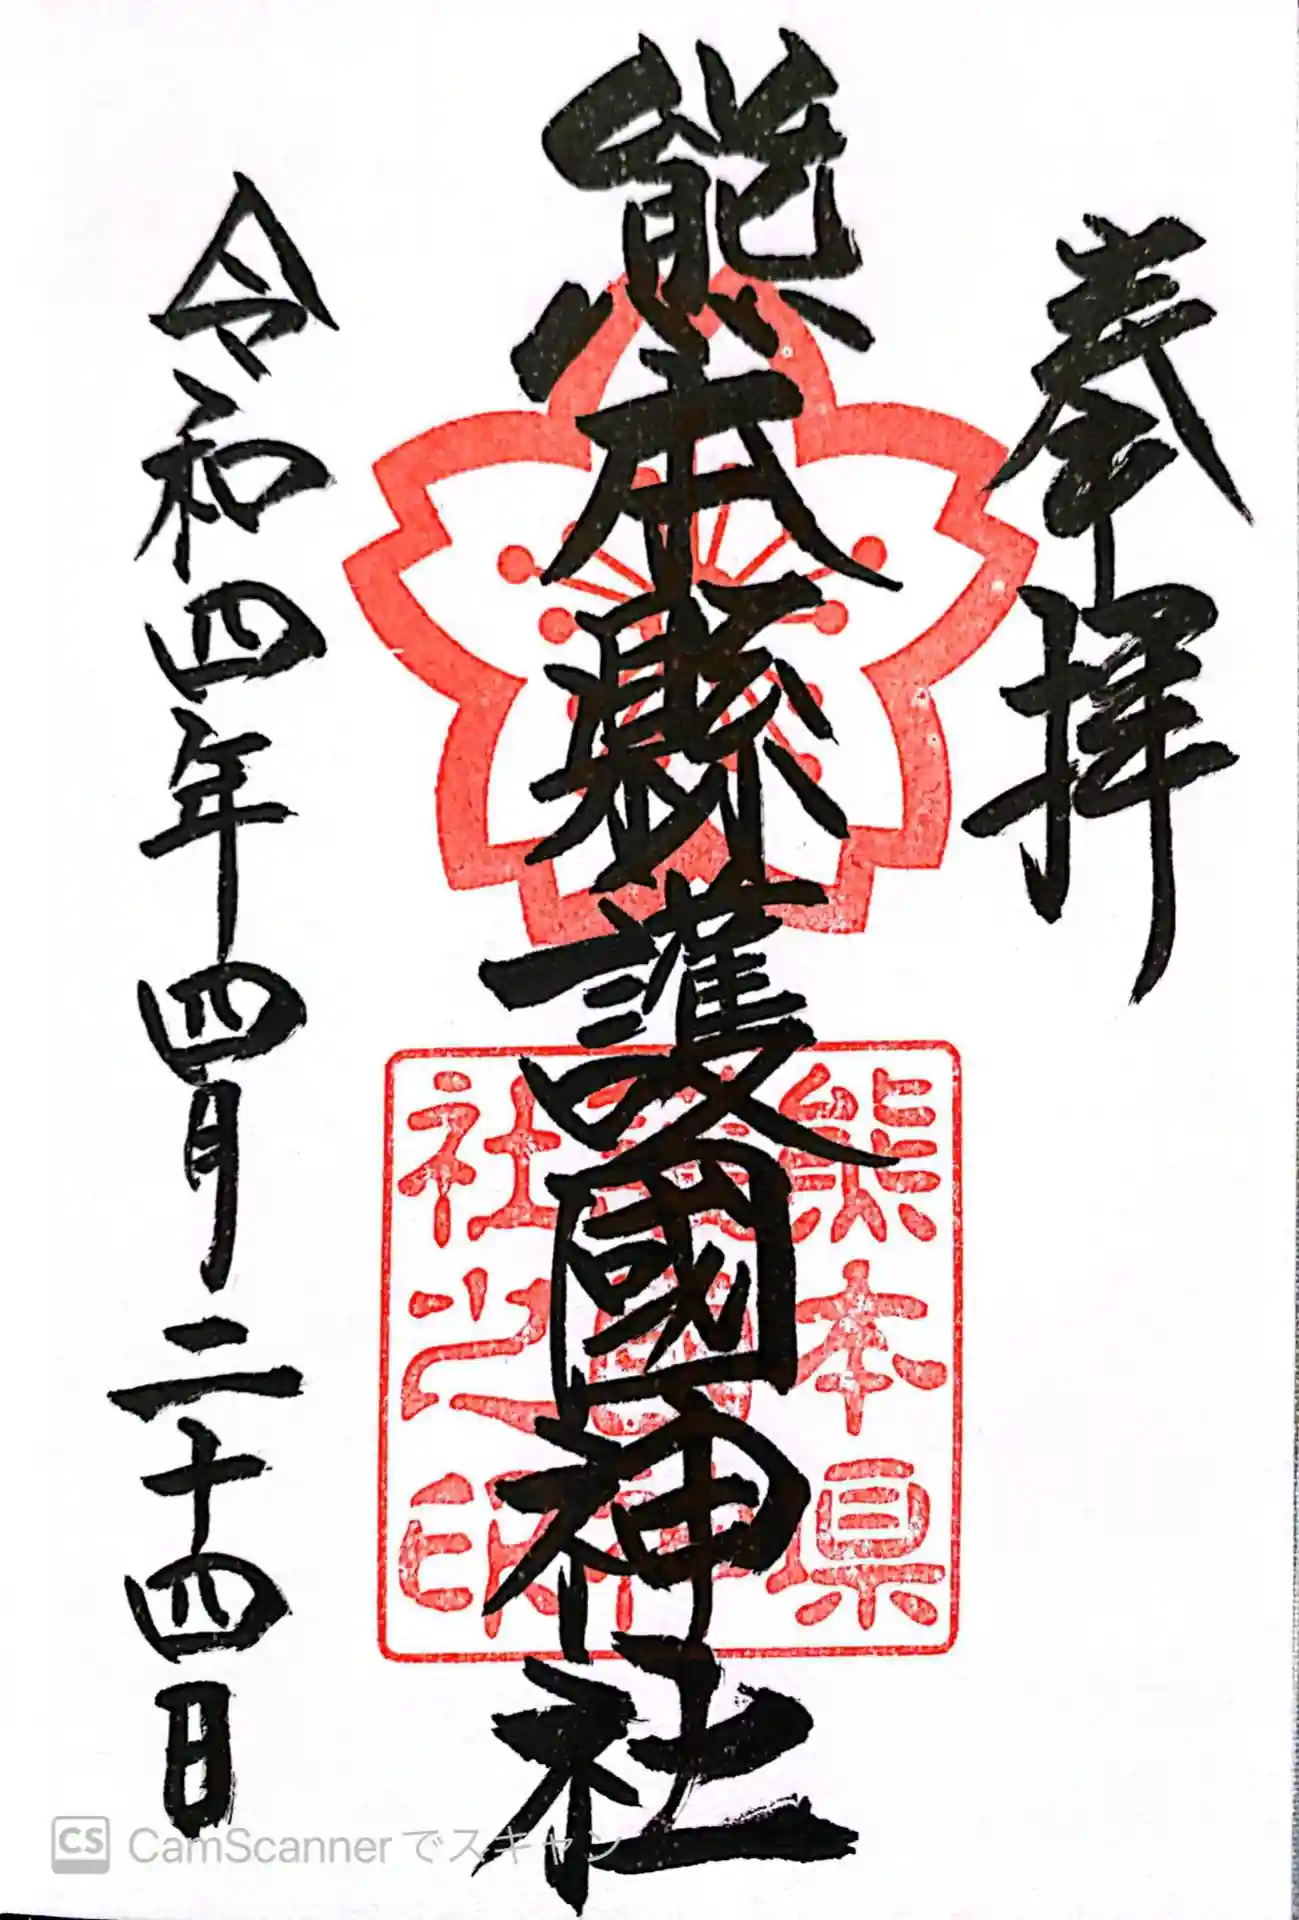 奉拝
熊本縣護國神社
熊本県
護国神
社之印
令和四年四月二十四日
CS CamScannerでスキャン